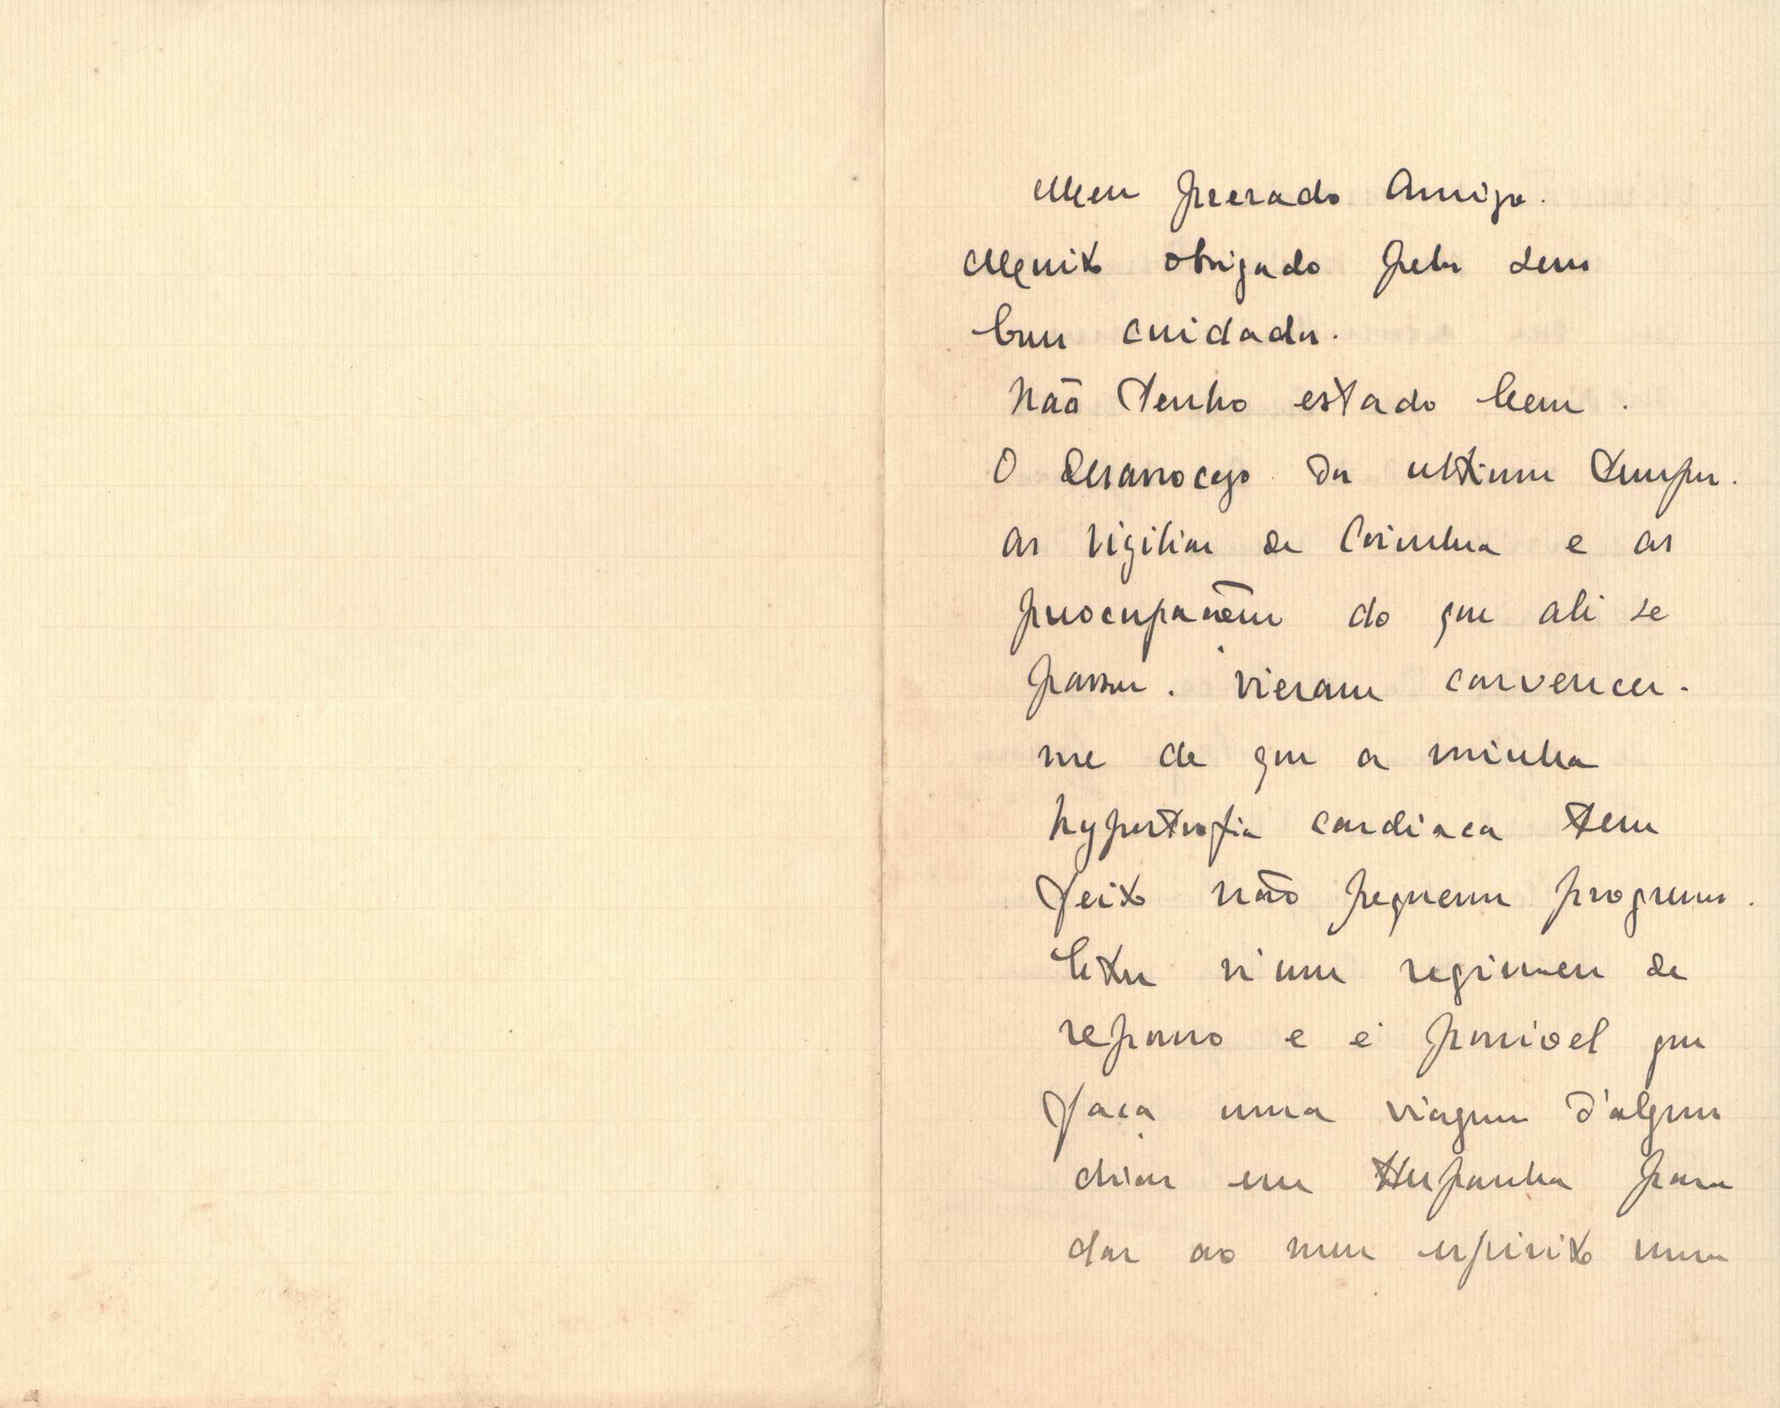 Meu prezado Amigo.
Muito obrigado pelos seus
bons cuidados.
Não tenho estado bem.
O desassocego dos ultimos tempos.
as vigilias de Coimbra e as
preocupações do que ali se
passou. vieram convencer-
me de que a minha
hypertrofia cardiaca tem
feito não pequenos progressos.
n'um regimen de
repouso e é possivel que
faça uma viagem d'alguns
dias em Hespanha para
dar ao meu espirito uma